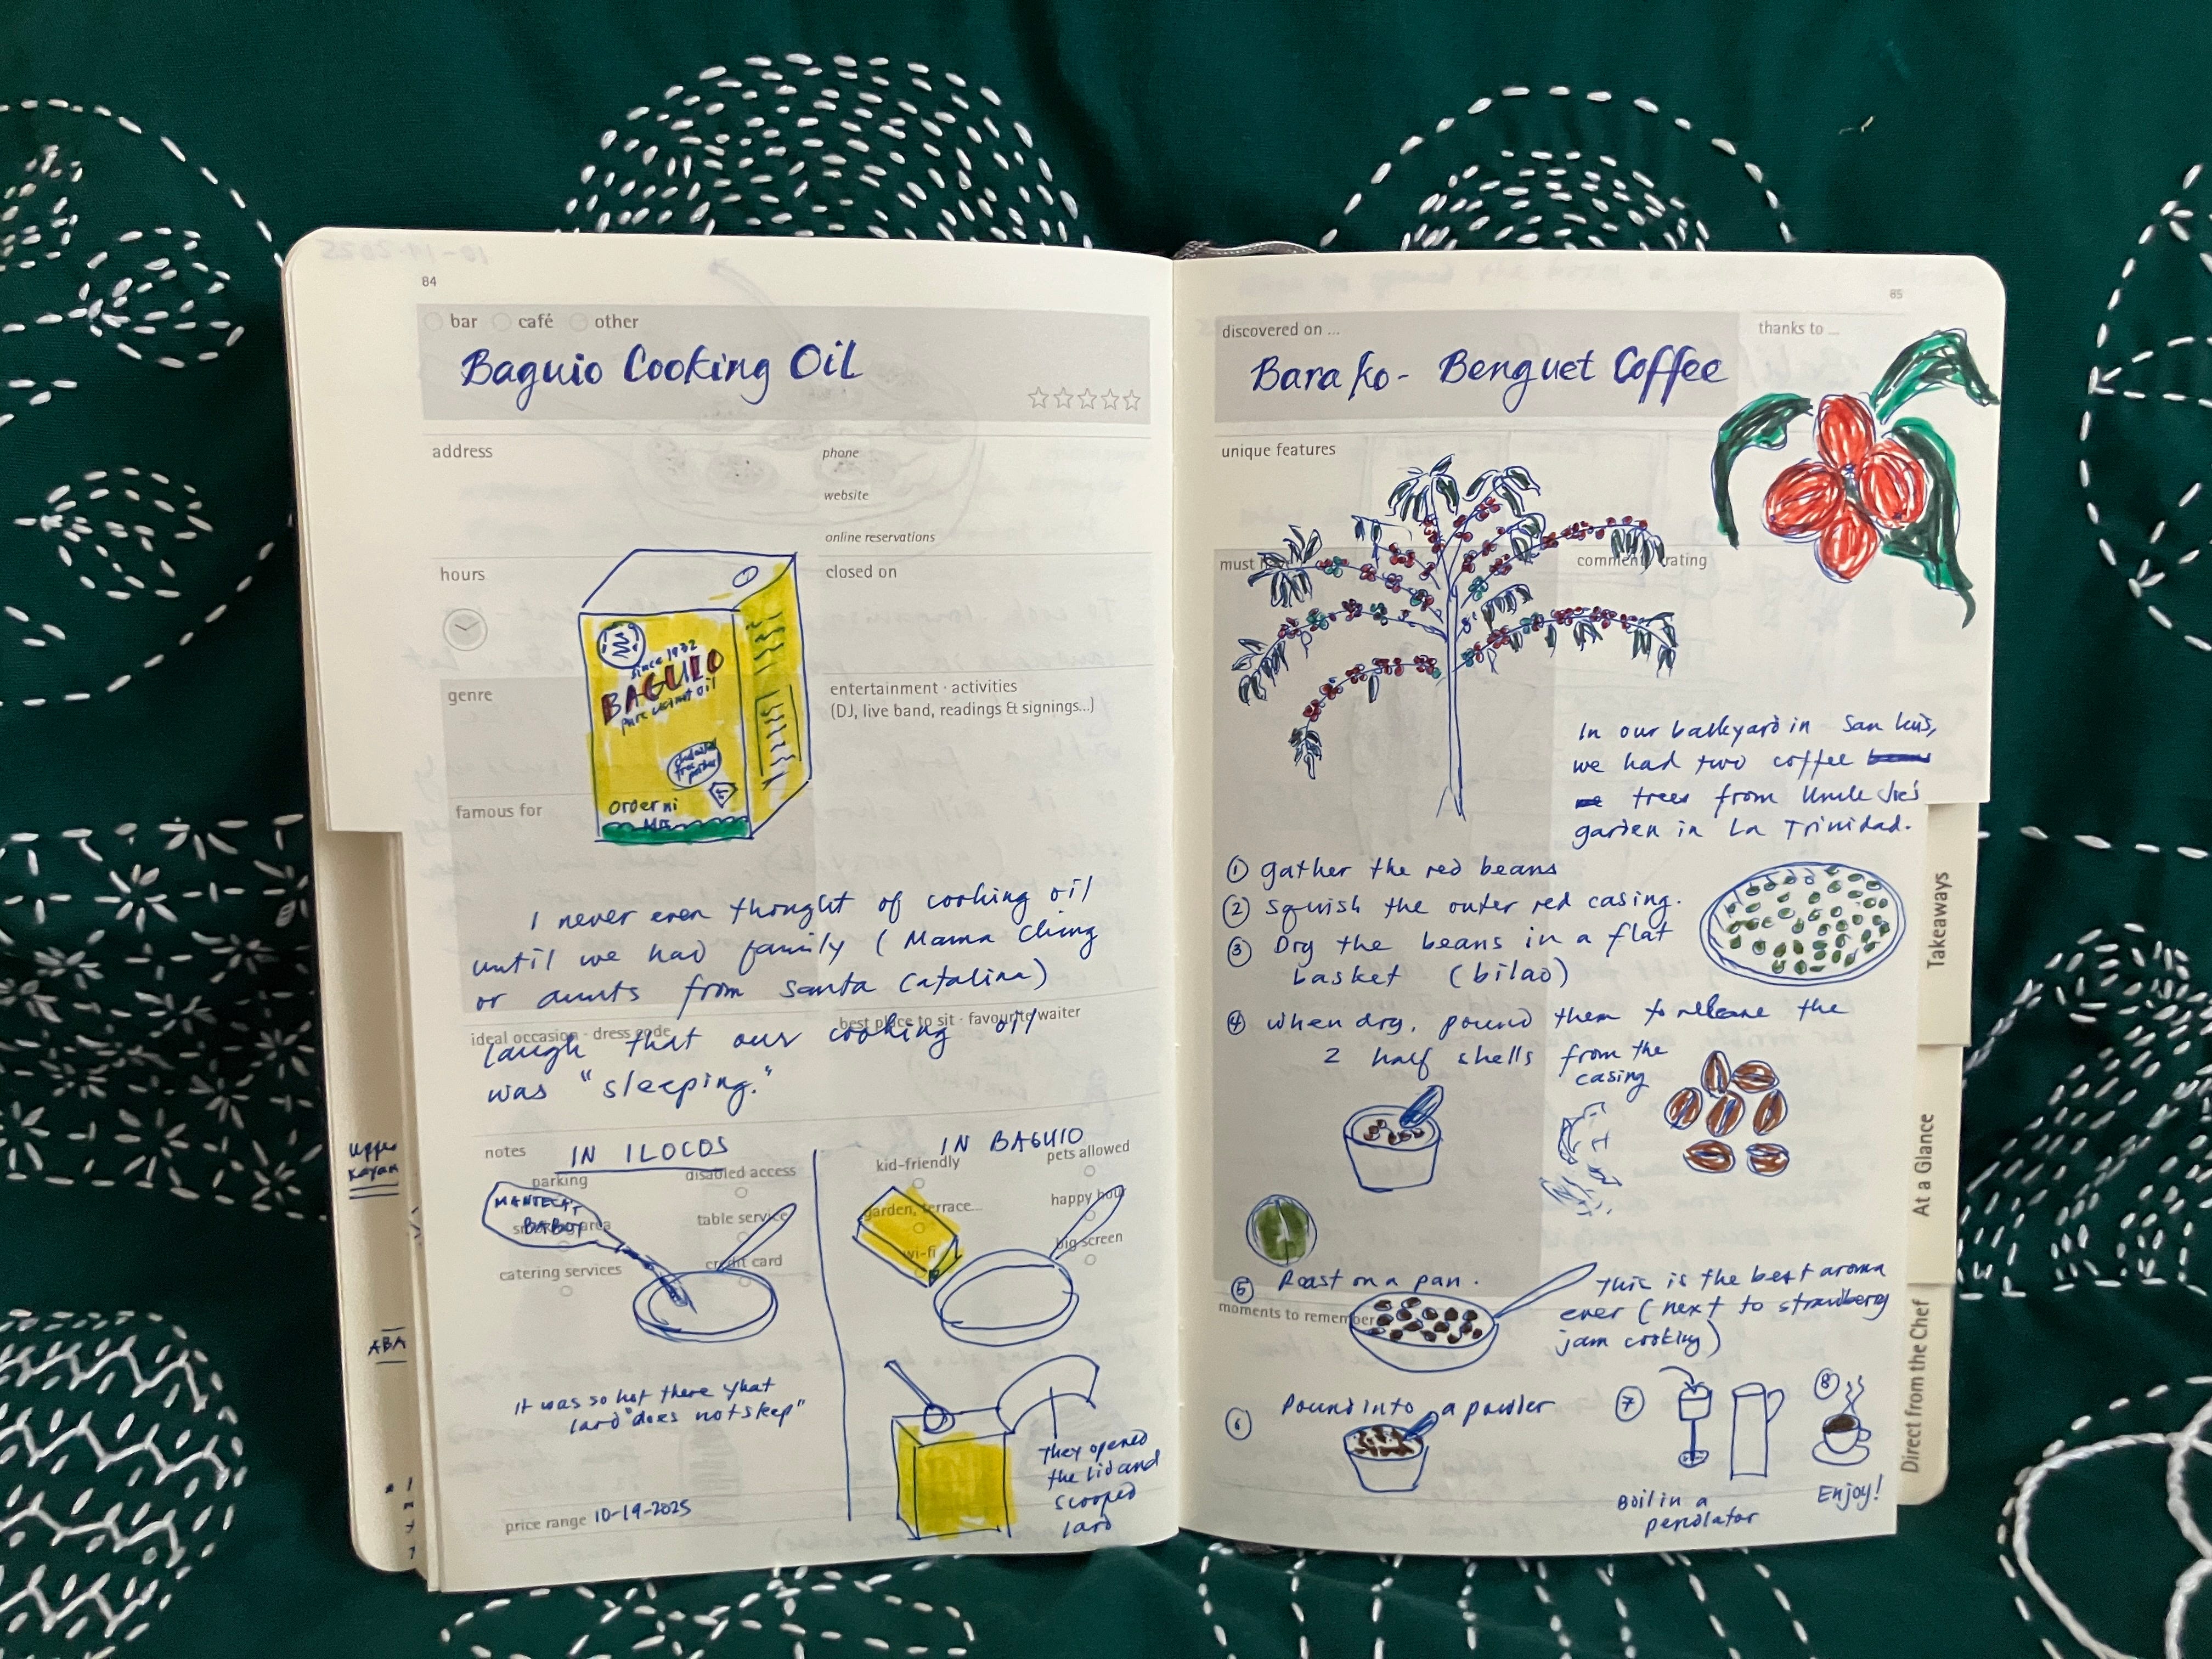 84
bar café other
Baguio Cooking Oil
address
phone
website
online reservations
hours
closed on
since 1932
BAGUIO
pure oil
Order ni
genre
entertainment · activities
(DJ, live band, readings & signings...)
famous for
I never even thought of cooking oil
until we had family (Mama Ching
or aunts from Santa Catalina)
ideal occasion · dress code
best place to sit · favourite waiter
laugh that our cooking oil
was "sleeping."
notes
IN ILOCOS
parking
disabled access
MANTECA,
BABOY
smoking area
table service
catering services
credit card
It was so hot there that
lard "does not sleep"
price range 10-19-2025
IN BAGUIO
kid-friendly
pets allowed
garden, terrace...
happy hour
wi-fi
big screen
They opened
the lid and
scooped
lard
Upper
Kayan
ABA
85
discovered on ...
thanks to ...
Barako - Benguet Coffee
unique features
must
comments rating
In our backyard in San Luis,
we had two coffee
trees from Uncle Joe's
garden in La Trinidad.
① gather the red beans
② Squish the outer red casing.
③ Dry the beans in a flat
basket (bilao)
④ When dry, pound them to release the
2 half shells from the
casing
⑤ Roast on a pan.
moments to remember
This is the best aroma
ever (next to strawberry
jam cooking)
⑥ Pound into a powder
⑦
Boil in a
percolator
⑧
Enjoy!
Takeaways
At a Glance
Direct from the Chef
10-19-2025